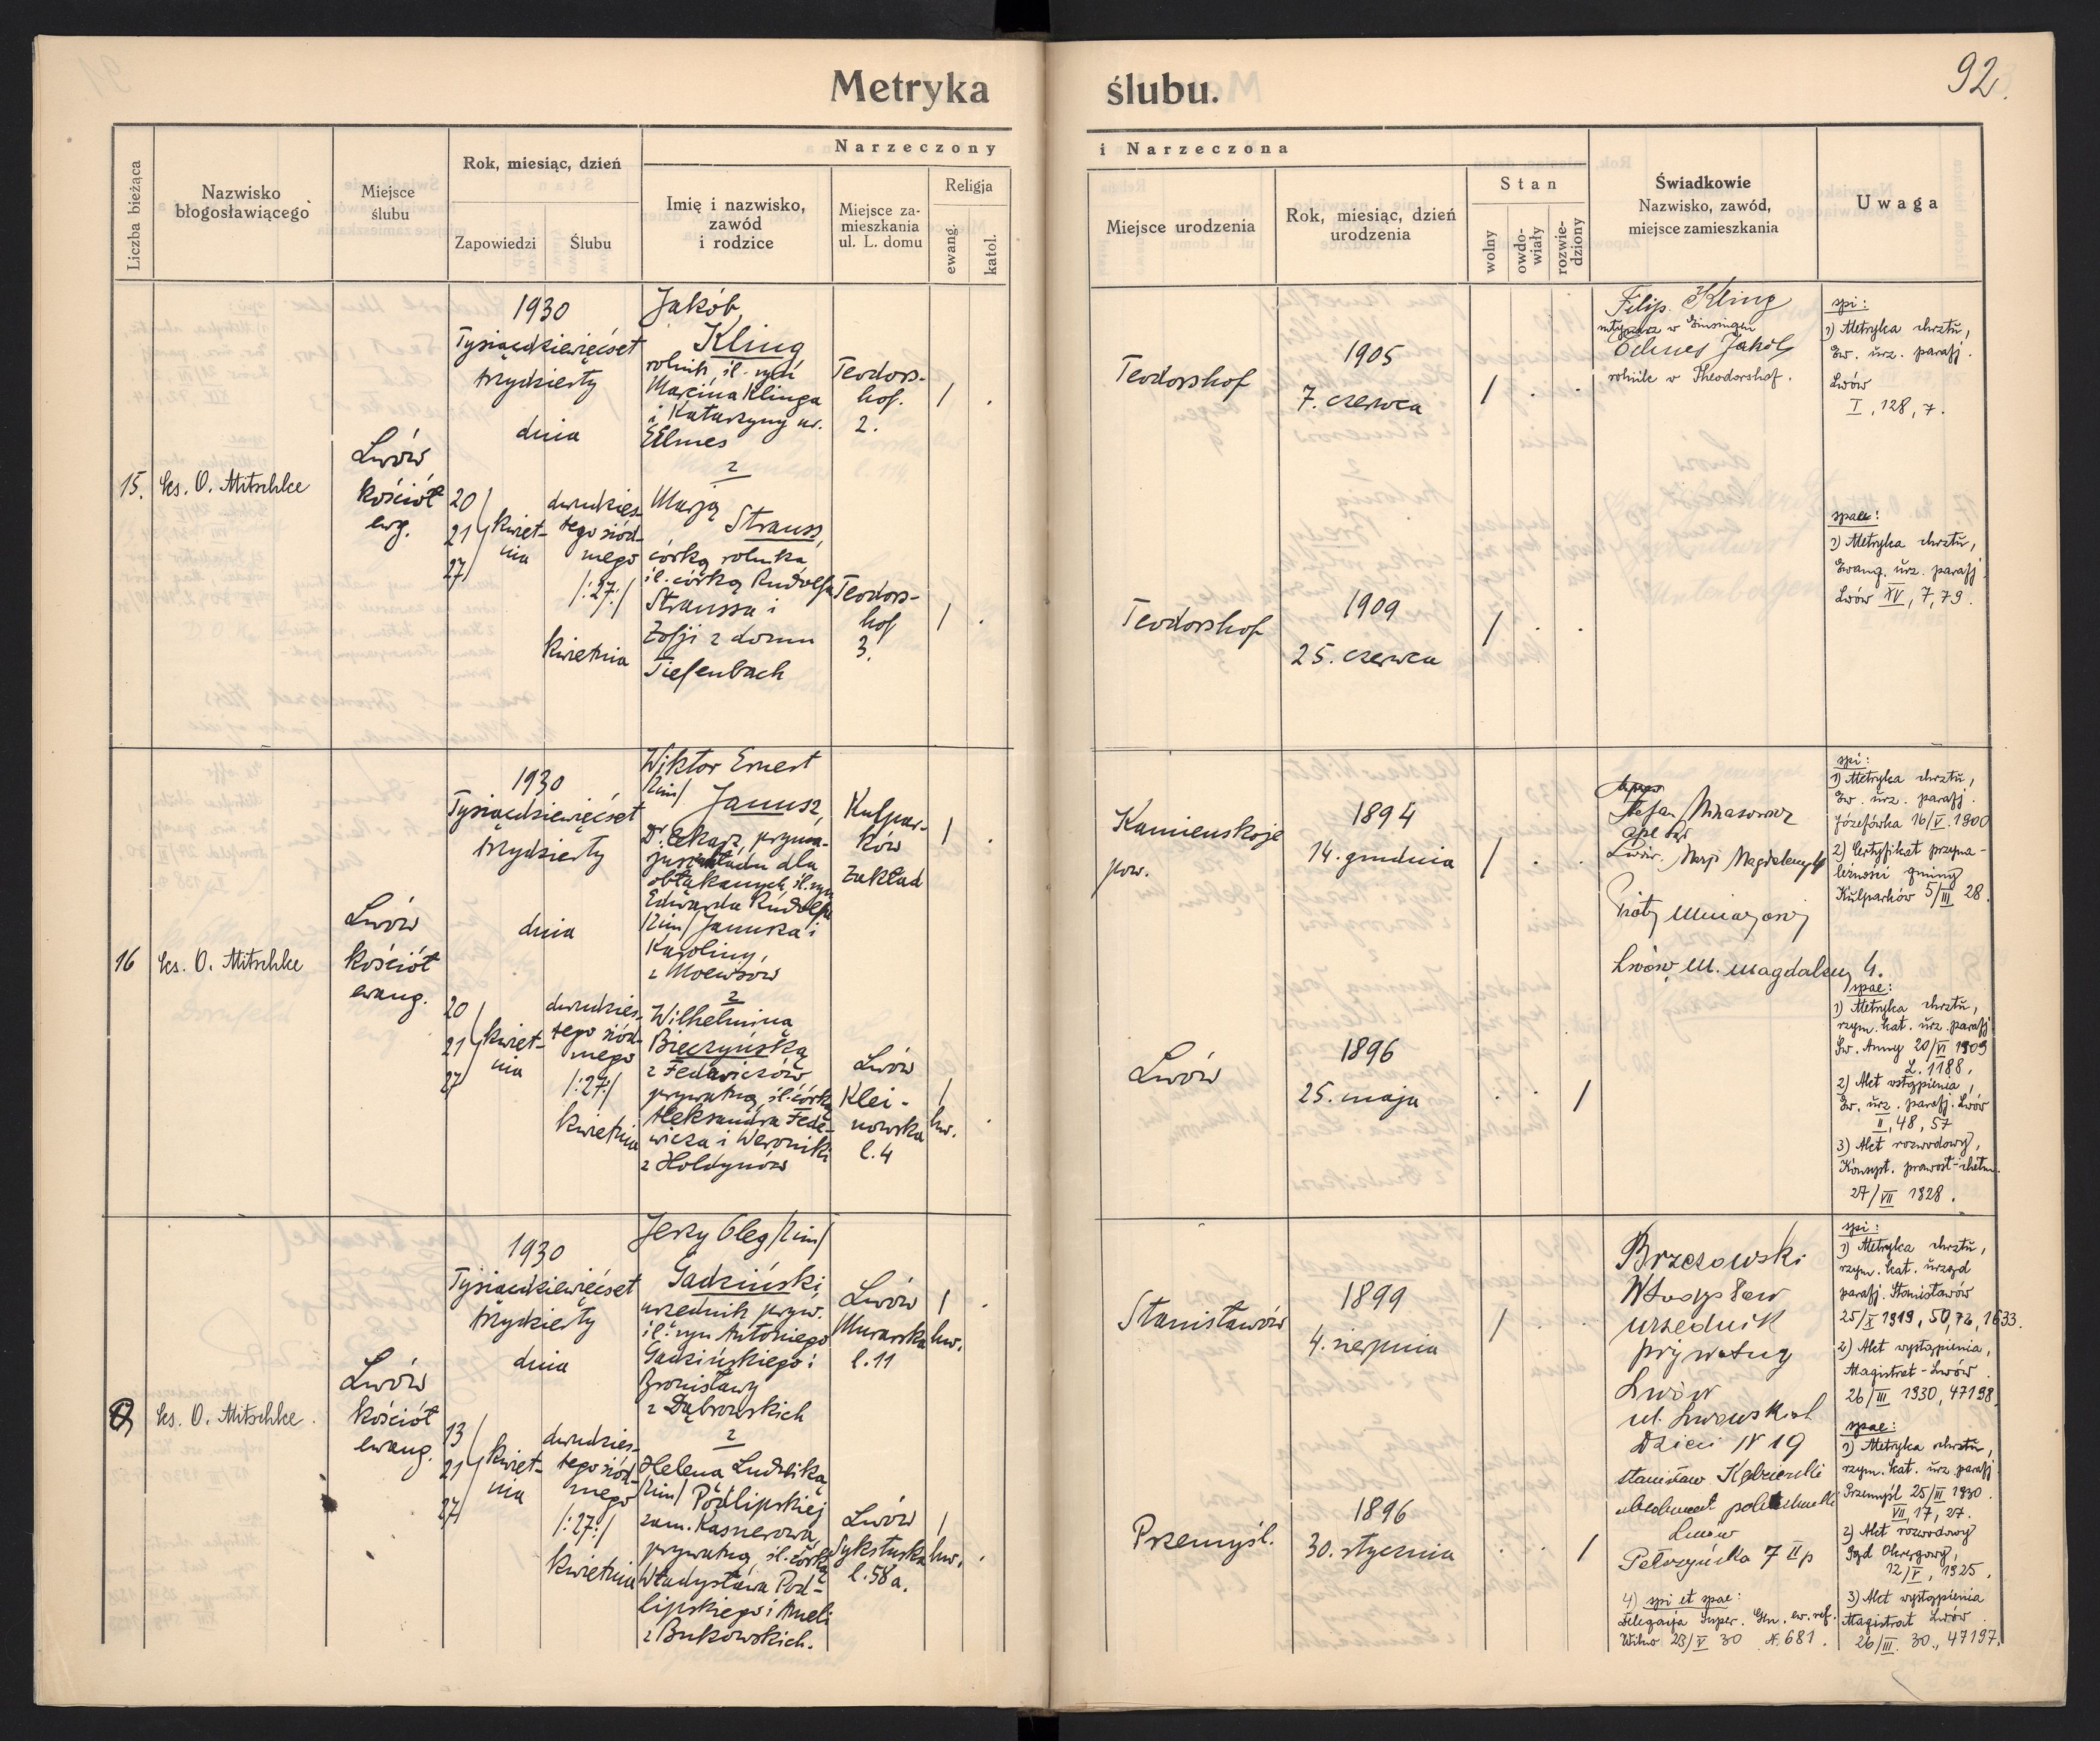 92.
Metryka ślubu.
Liczba bieżąca
Nazwisko
błogosławiącego
Miejsce
ślubu
Rok, miesiąc, dzień
Zapowiedzi
Ślubu
Narzeczony i Narzeczona
Imię i nazwisko,
zawód
i rodzice
Miejsce za-
mieszkania
ul. L. domu
Religja
ewang.
katol.
Miejsce urodzenia
Rok, miesiąc, dzień
urodzenia
Stan
wolny
owdo-
wiały
rozwie-
dziony
Świadkowie
Nazwisko, zawód,
miejsce zamieszkania
Uwaga
15.
ks. O. Mitschke
Lwów
kościół
ewg.
1930
Tysiącdziewięćset
trzydziesty
dnia
20
21
27
kwiet-
nia
dwudzies-
tego siód-
mego
/:27:/
kwietnia
Jakób
Kling
rolnik, śl. syn
Marcina Klinga
i Katarzyny ur.
Elmes
z
Marją
Strauss,
córką rolnika
śl. córką Rudolfa
Straussa i
Zofji z domu
Tiefenbach
Teodors-
hof.
2.
Teodors-
hof
3.
Teodorshof
1905
7. czerwca
Teodorshof
1909
25. czerwca
Filip Kling
w Einsingen
Elmes Jakób
rolnik w Theodorshof.
spi:
1) Metryka chrztu,
Ew. urz. parafj.
Lwów
I, 128, 7.
spae:
1) Metryka chrztu,
Ewang. urz. parafj.
Lwów XV, 7, 79.
16
ks. O. Mitschke
Lwów
kościół
ewang.
1930
Tysiącdziewięćset
trzydziesty
dnia
20
21
27
kwiet-
nia
dwudzies-
tego siód-
mego
/:27:/
kwietnia
Wiktor Ernest
/2im/
Janusz,
Dr. lekarz, pryma-
zakładu dla
obłąkanych, śl. syn
Edwarda Rudolfa
/2im/ Janusza i
Karoliny,
z Moewsów
z
Wilhelminą
Bieczyńską
z Fedewiczów
prywatną, śl. córką
Aleksandra Fede-
wicza i Weroniki
z Hołdynów
Kulpar-
ków
Zakład
Lwów
Klei-
nowska
l. 4
hw.
Kamienskoje
pow.
1894
14. grudnia
Lwów
1896
25. maja
Stefan
Lwów. Marji Magdaleny 4
Lwów M. Magdaleny 4.
spi:
1) Metryka chrztu,
Ew. urz. parafj.
Józefówka 16/V. 1900
2) Certyfikat przyna-
leżności gminy
Kulparków 5/III 28.
spae:
1) Metryka chrztu,
rzym. kat. urz. parafj.
Św. Anny 20/VI 1909
L. 1188,
2) Akt wstąpienia,
Ew. urz. parafj. Lwów
II, 48, 57
3) Akt rozwodowy,
Konsyst. prawosł-chełm.
27/VII 1928.
17
ks. O. Mitschke.
Lwów
kościół
ewang.
1930
Tysiącdziewięćset
trzydziesty
dnia
13
21
27
kwiet-
nia
dwudzies-
tego siód-
mego
/:27:/
kwietnia
Jerzy Oleg /2im/
Gadziński
urzednik pryw.
śl. syn Antoniego
Gadzińskiego i
Bronisławy
z Dąbrowskich
z
Heleną Ludwiką
/2im/ Podlipskiej
zam. Kasnerową,
prywatną, śl. córką
Władysława Pod-
lipskiego i Ameli
z Bukowskich.
Lwów
Murarska
l. 11
hw.
Lwów
Sykstuska
l. 58a.
hw.
Stanisławów
1899
4. sierpnia
Przemyśl.
1896
30. stycznia
Brzezowski
Władysław
urzednik
prywatny
Lwów
ul. Lwowskich
Dzieci N 19
Stanisław Kędzierski
Lwów
Pełczyńska 7 II p
4) spi et spae:
Delegacja Super. Gen. ew. ref.
Wilno 23/V 30 N. 681.
spi:
1) Metryka chrztu,
rzym. kat. urząd
parafj. Stanisławów
25/X 1919, 50, 72, 1633.
2) Akt wystąpienia,
Magistrat - Lwów
26/III 1930, 47198.
spae:
1) Metryka chrztu,
rzym. kat. urz. parafj.
Przemyśl 25/III 1930.
VII, 17, 27.
2) Akt rozwodowy
Sąd Okręgowy,
12/V, 1925.
3) Akt wystąpienia
Magistrat Lwów
26/III. 30., 47197.